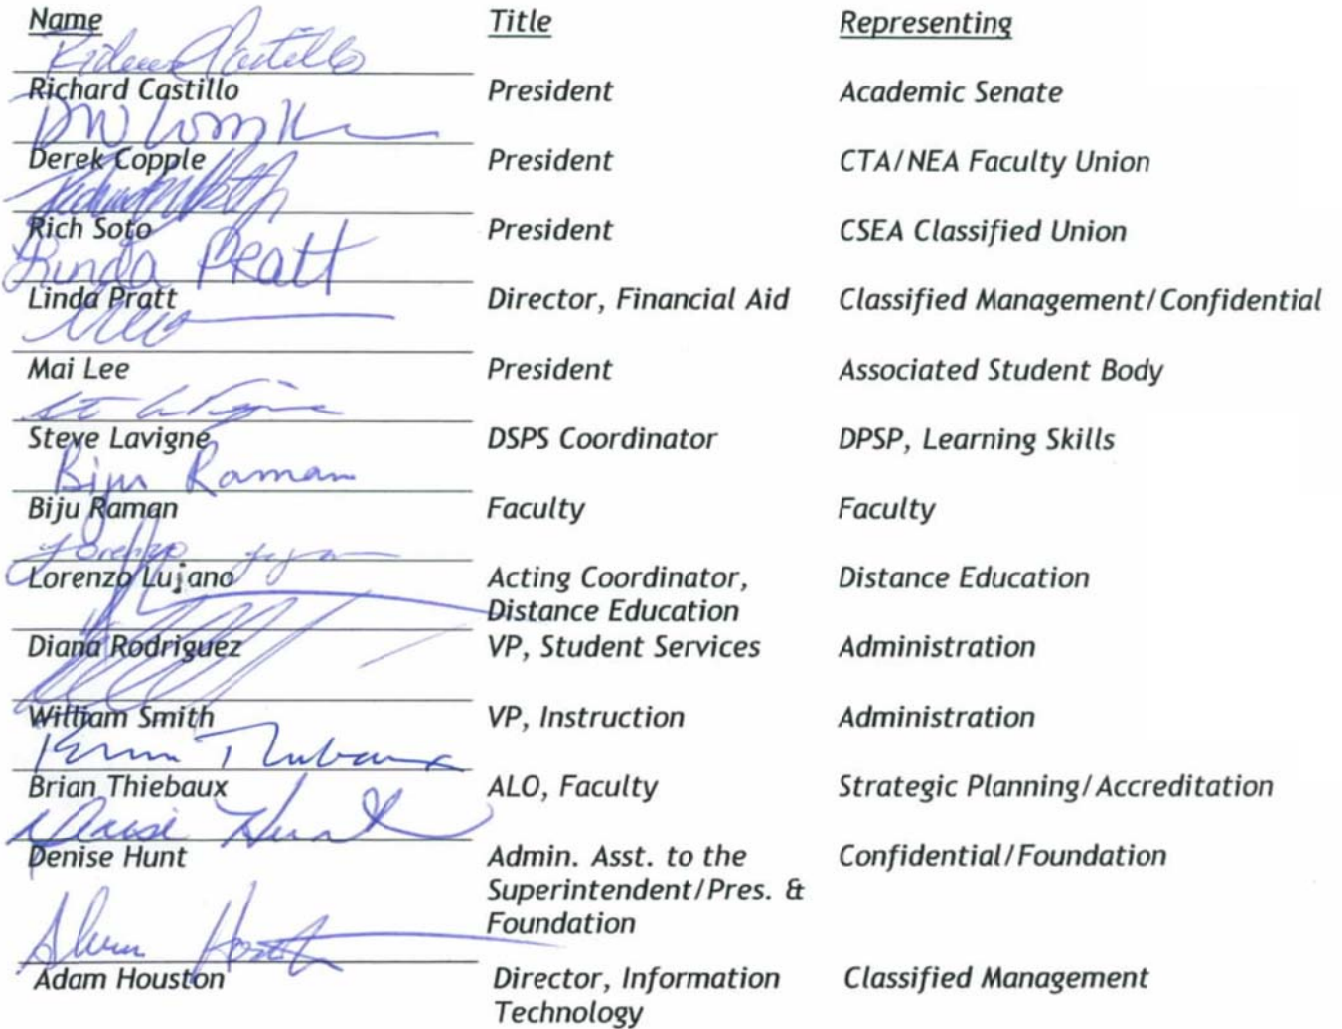 Name Title Representing
Richard Castillo President Academic Senate
Derek Copple President CTA/NEA Faculty Union
Rich Soto President CSEA Classified Union
Linda Pratt
Linda Pratt Director, Financial Aid Classified Management/Confidential
Mai Lee President Associated Student Body
Steve Lavigne DSPS Coordinator DPSP, Learning Skills
Biju Raman
Biju Raman Faculty Faculty
Lorenzo
Lorenzo Lujano Acting Coordinator, Distance Education
Distance Education
Diana Rodriguez VP, Student Services Administration
William Smith VP, Instruction Administration
Brian Thiebaux ALO, Faculty Strategic Planning/Accreditation
Denise Hunt Admin. Asst. to the Confidential/Foundation
Superintendent/Pres. &
Foundation
Adam Houston Director, Information Classified Management
Technology